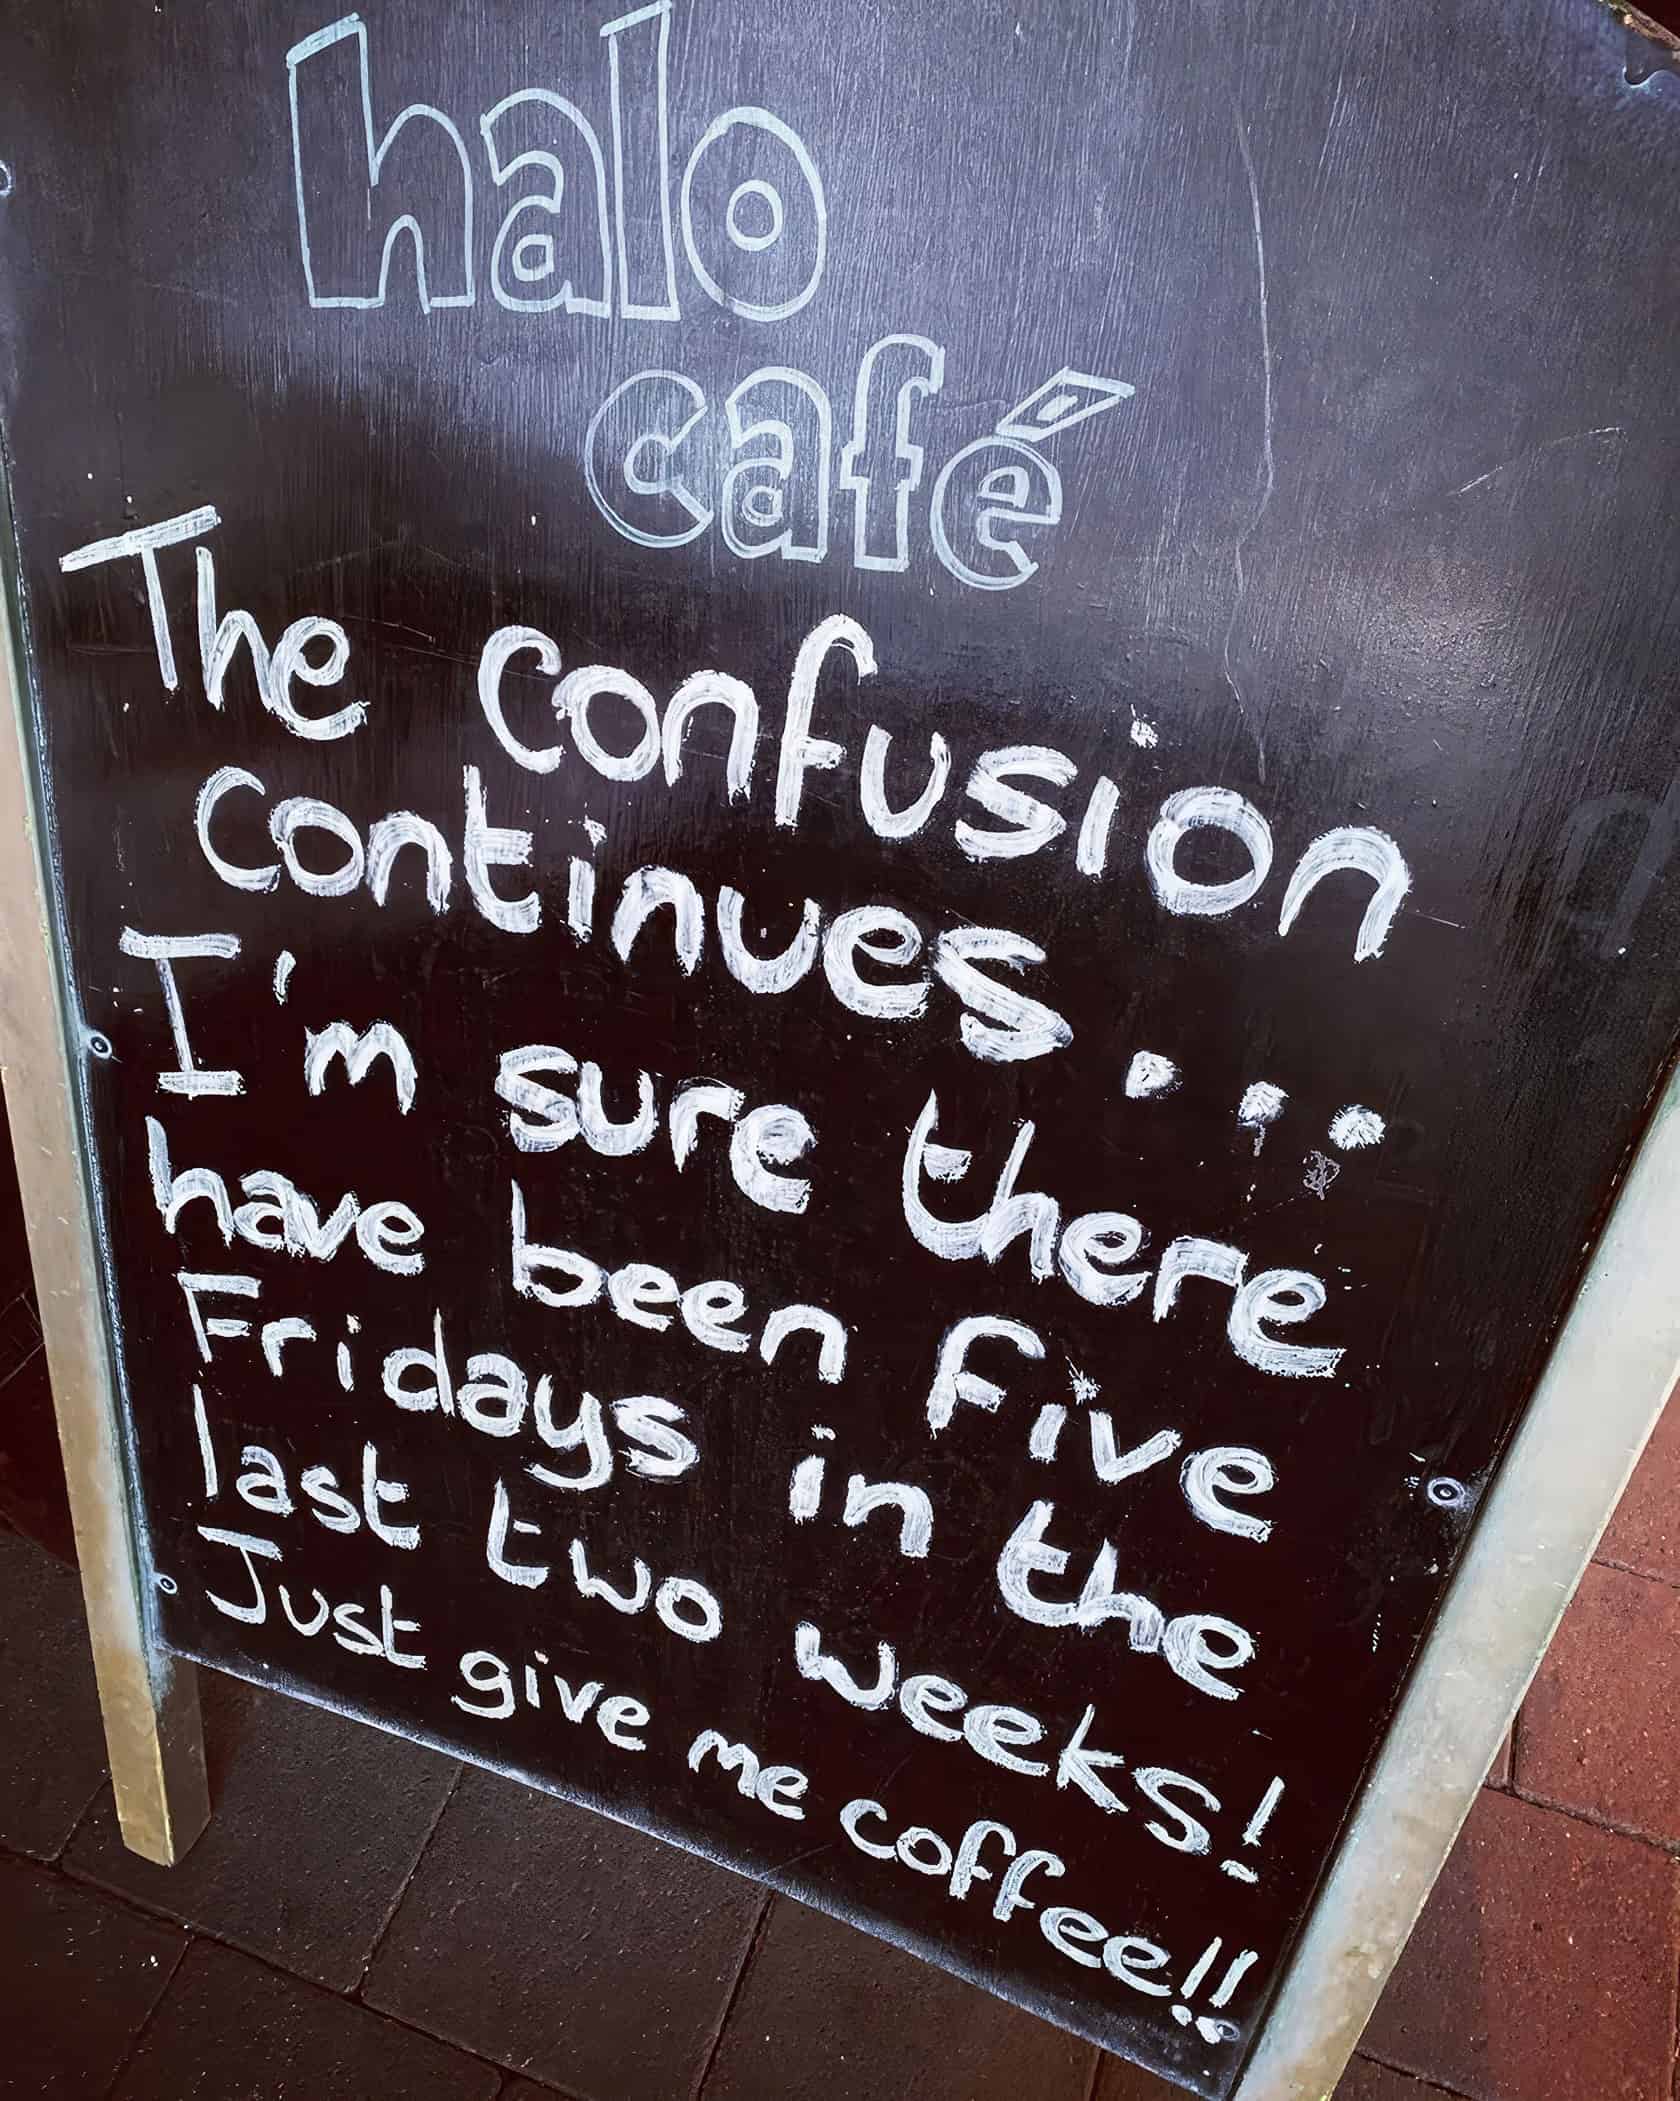 halo
café
The confusion
continues...
I'm sure there
have been five
Fridays in the
last two weeks!
Just give me coffee!!